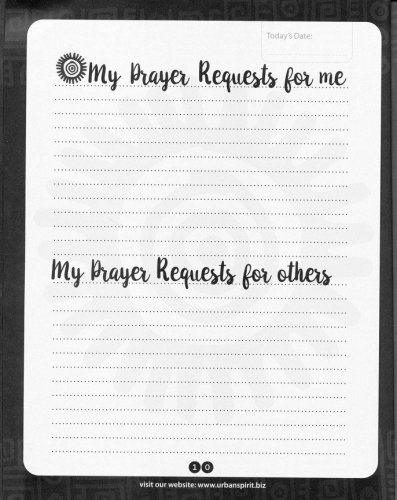 Today's Date:
My Prayer Requests for me
My Prayer Requests for others
10
visit our website: www.urbanspirit.biz